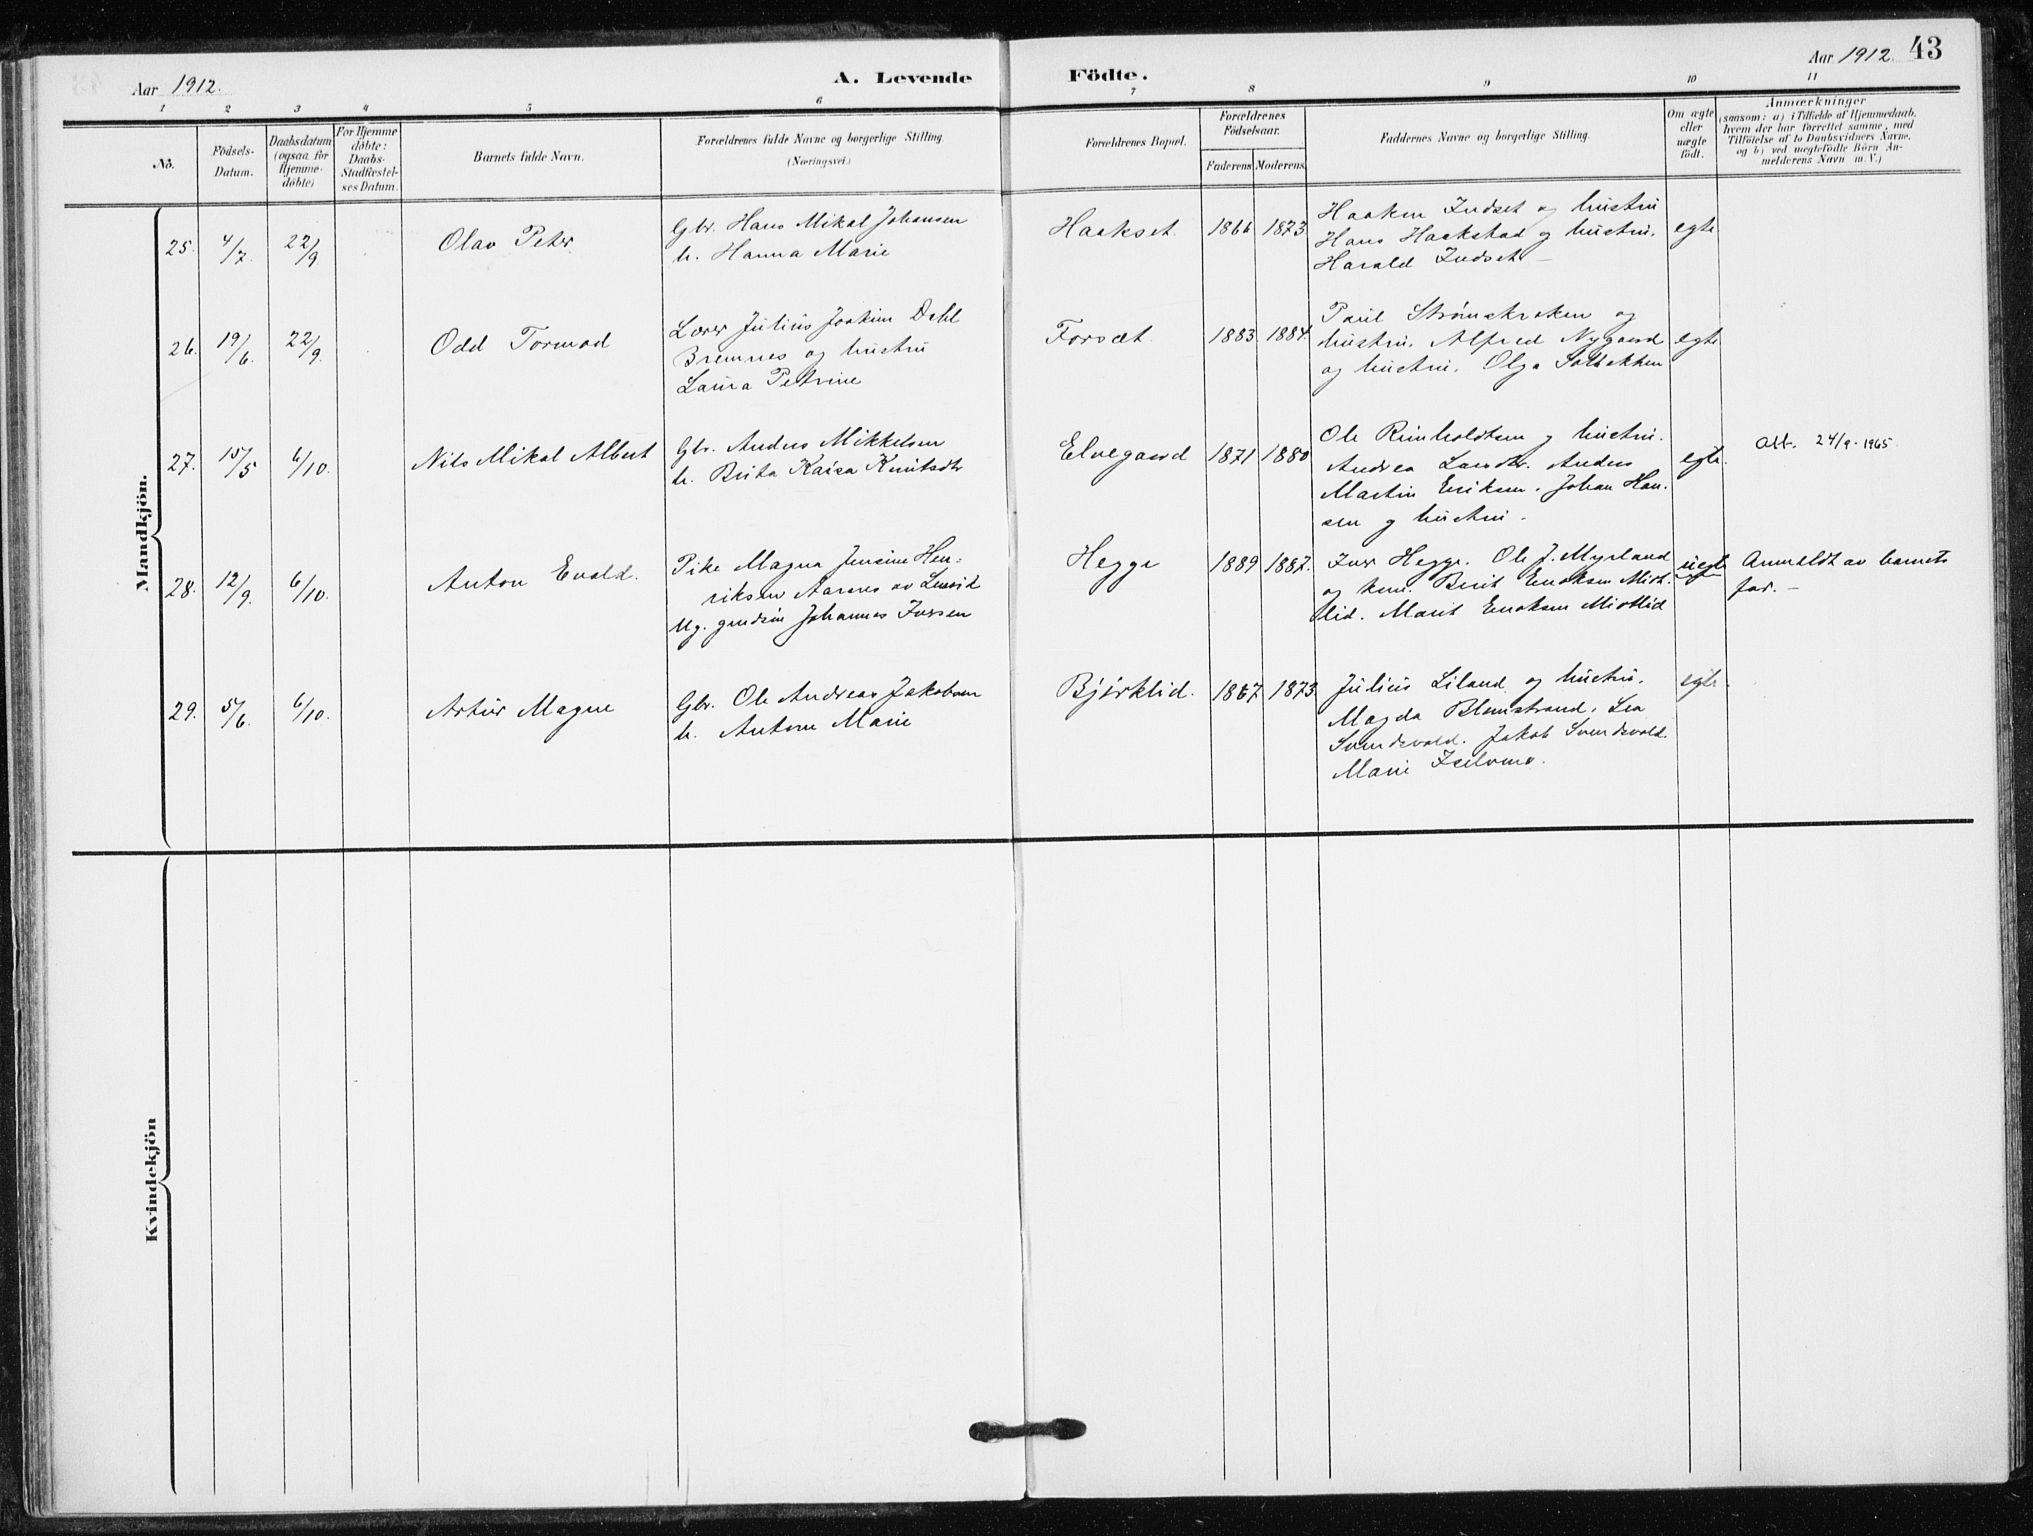 Aar 1912.
A. Levende Födte.
Aar 1912. 43
1 2 3 4 5 6 7 8 9 10 11
No.
Födsels-
Datum.
Daabsdatum
(ogsaa for
Hjemme-
döbte)
For Hjemme
döbte:
Daabs-
Stadfæstel-
ses Datum.
Barnets fulde Navn.
Forældrenes fulde Navne og borgerlige Stilling.
(Næringsvei.)
Forældrenes Bopæl.
Forældrenes
Födselsaar.
Faderens Moderens
Faddernes Navne og borgerlige Stilling.
Om ægte
eller
uægte
födt.
Anmærkninger
(saasom: a) i Tilfælde af Hjemmedaab,
hvem der har forrettet samme, med
Tilföielse af to Daabsvidners Navne,
og b) ved uægtefödte Börn An-
melderens Navn m. V.)
Mandkjön.
25. 4/7. 22/9 Olav Peter
Gbr. Hans Mikal Johansen
h. Hanna Marie
Haakset. 1866 1873
Haaken Indset og hustru
Hans Haakstad og hustru.
Harald Indset
egte
26. 19/6. 22/9. Odd Tormod
Lærer Julius Joakim Dahl
Bremnes og hustru
Laura Petrine
Forsæt. 1883 1884.
Paul Strømskroken og
hustru. Alfred Nygaard
og hustru. Olga Solbakken
egte
27. 15/5 6/10. Nils Mikal Albert
Gbr. Anders Mikkelsen
h. Brita Kaisa Knutsdtr
Elvegaard 1871 1880
Ole Reinholdtsen og hustru.
Andrea Larsdtr. Anders
Martin Eriksen. Johan Han-
sen og hustru.
egte.
Att. 24/9-1965.
28. 12/9. 6/10. Anton Evald.
Pike Magna Jensine Hen-
riksen Aarnes av
Ug. gmdsøn Johannes Iversen
Hegge 1889 1887.
Iver Hegge. Ole J. Myrland
og kone. Berit Eriksen
lid. Marit Eriksen
uegte
Anmeldt av barnets
far. —
29. 5/6. 6/10. Artur Magne
Gbr. Ole Andreas Jakobsen
h. Antone Marie
Bjørklid. 1867 1873
Julius Liland og hustru.
Magda Blomstrand. Lea
Svendsvold. Jakob Svendsvold.
Marie
egte.
Kvindekjön